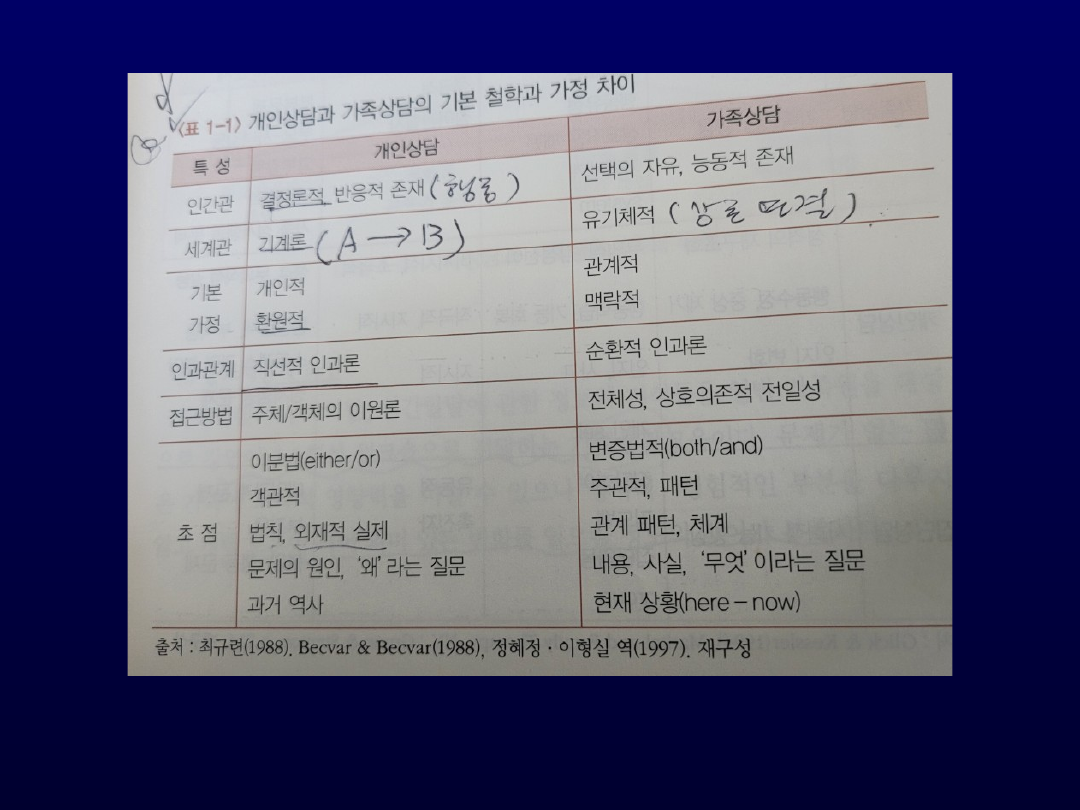 〈표 1-1〉 개인상담과 가족상담의 기본 철학과 가정 차이
특성 개인상담 가족상담
인간관 결정론적, 반응적 존재 (행동) 선택의 자유, 능동적 존재
세계관 기계론 (A → B) 유기체적 (상호 연결)
기본 개인적 관계적
가정 환원적 맥락적
인과관계 직선적 인과론 순환적 인과론
접근방법 주체/객체의 이원론 전체성, 상호의존적 전일성
이분법(either/or) 변증법적(both/and)
객관적 주관적, 패턴
초점 법칙, 외재적 실제 관계 패턴, 체계
문제의 원인, ‘왜’ 라는 질문 내용, 사실, ‘무엇’ 이라는 질문
과거 역사 현재 상황(here – now)
출처 : 최규련(1988). Becvar & Becvar(1988), 정혜정 · 이형실 역(1997). 재구성